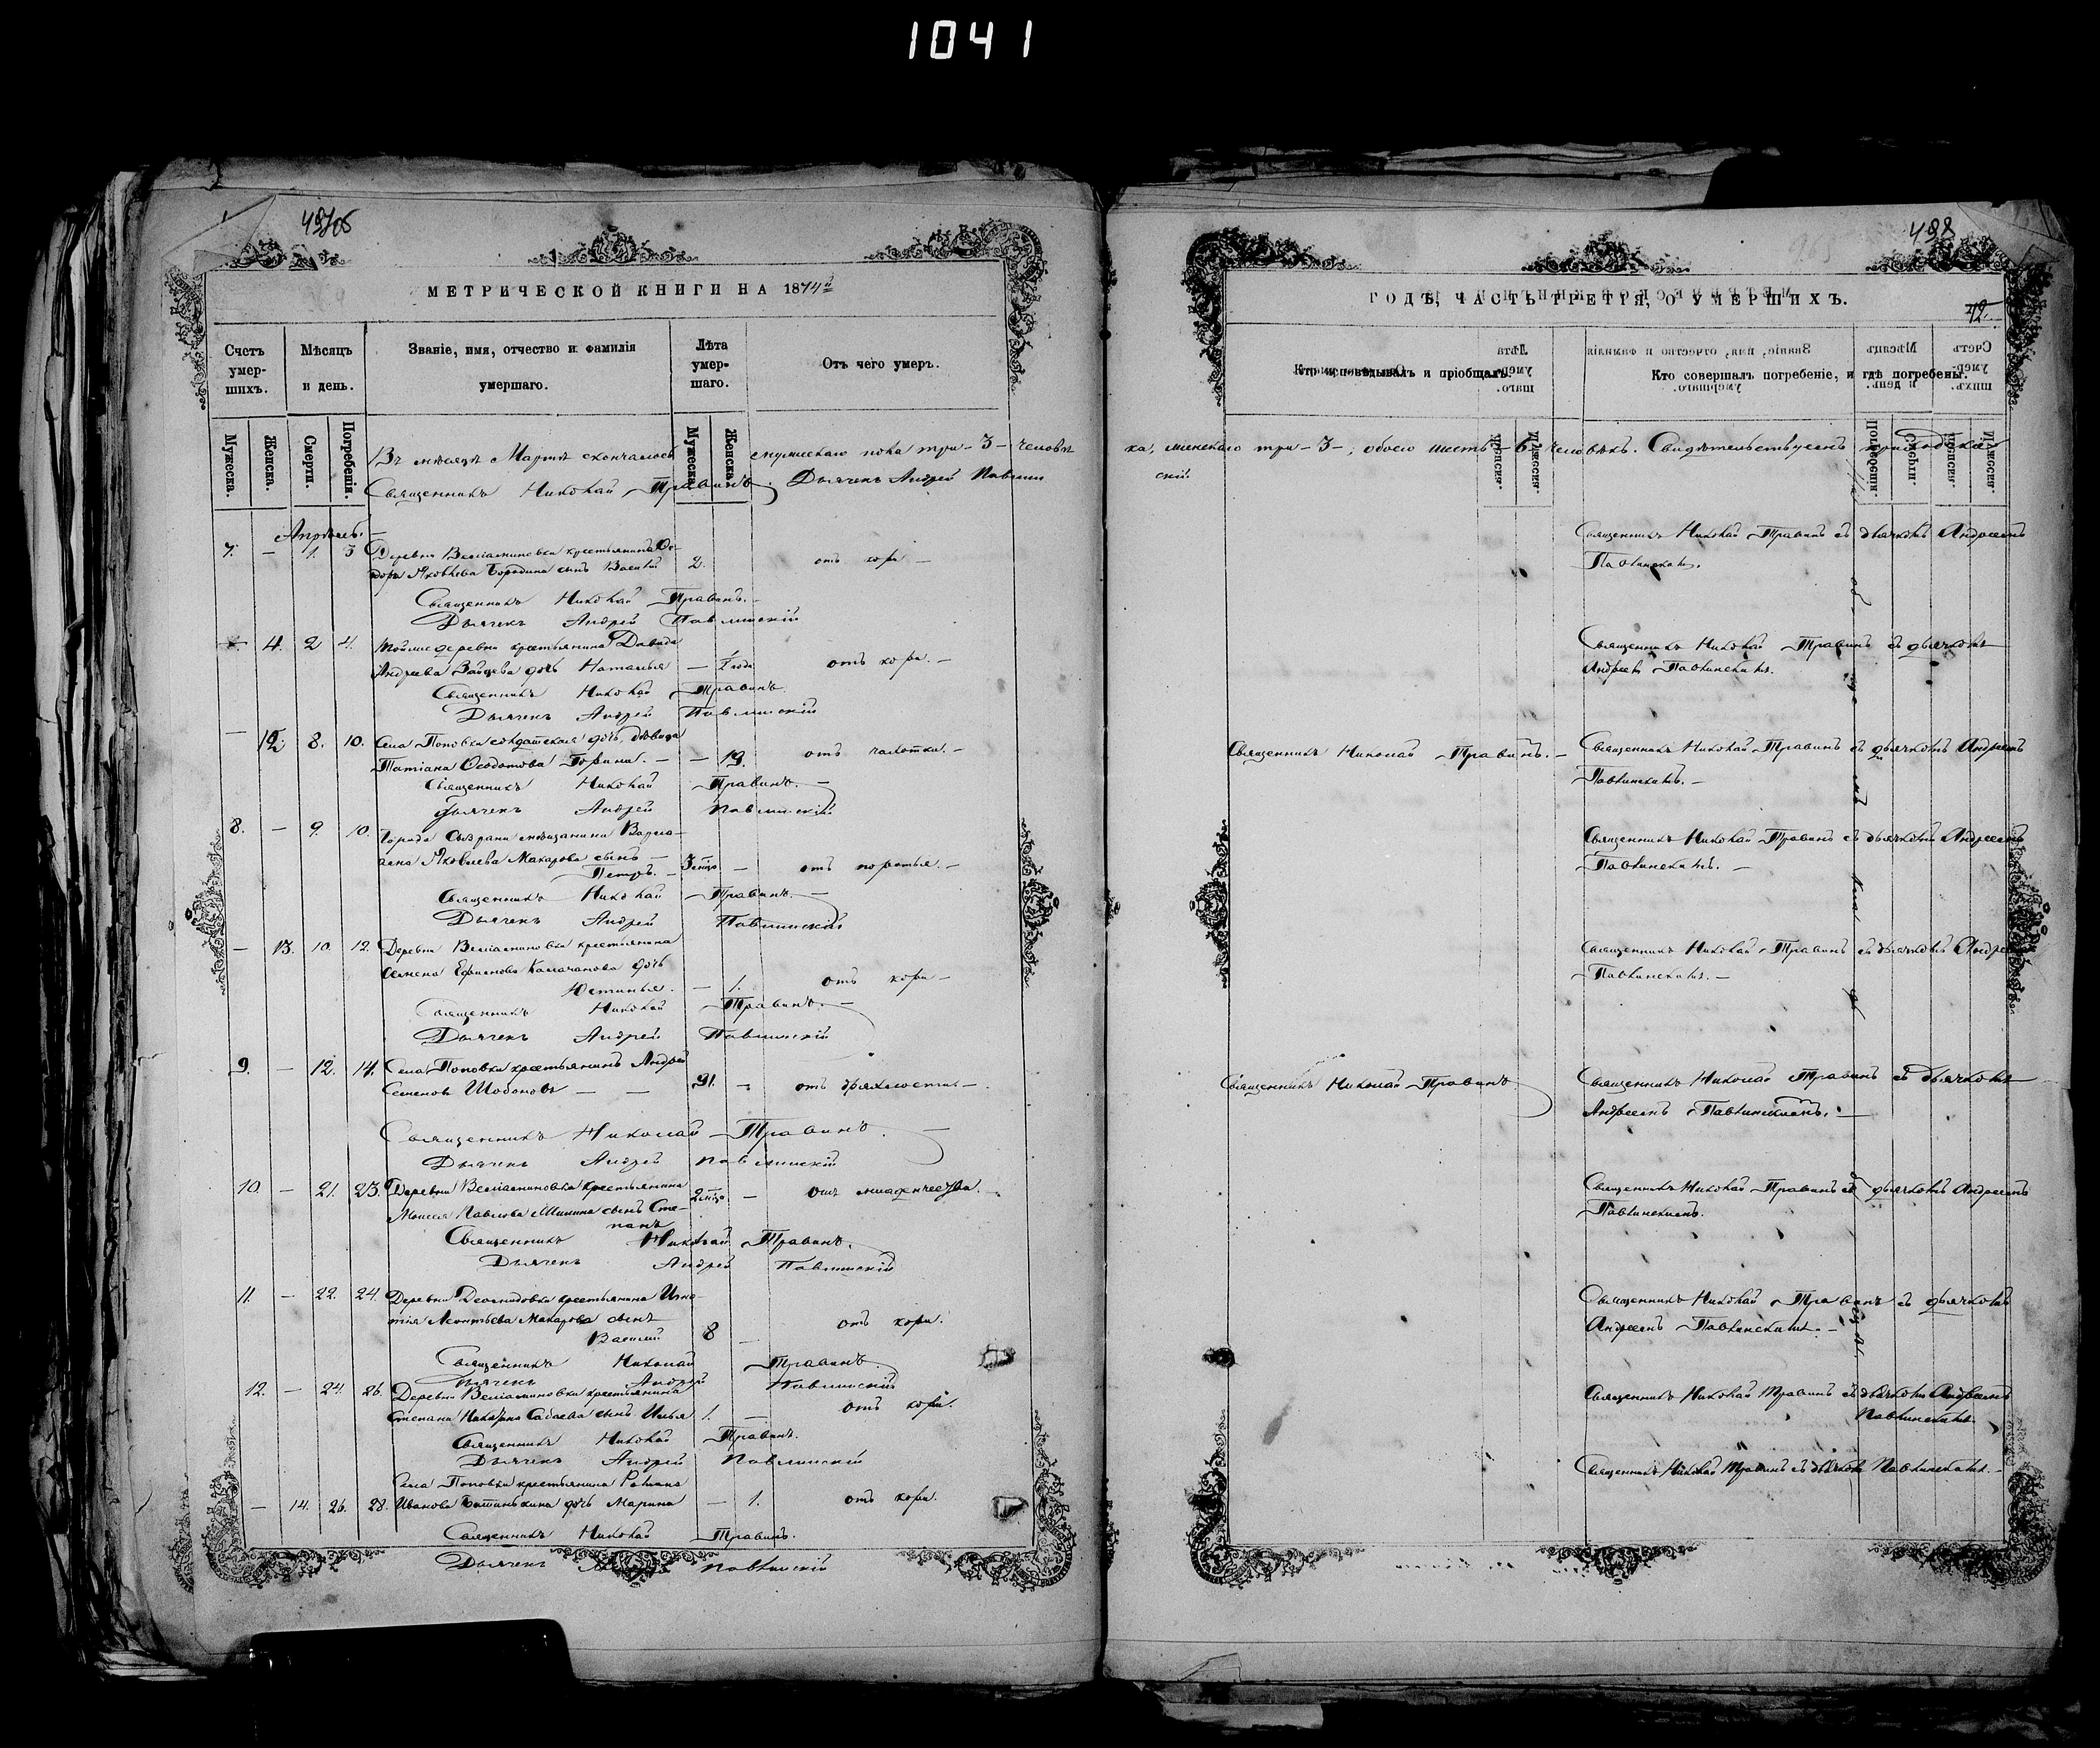 1041
498
МЕТРИЧЕСКОЙ КНИГИ НА 1874й
ГОДЪ, ЧАСТЬ ТРЕТІЯ, О УМЕРШИХЪ.
Счетъ умер-
шихъ.
Мѣсяцъ
и день.
Званіе, имя, отчество и фамилія
умершаго.
Лѣта
умер-
шаго.
Отъ чего умеръ.
Кто исповѣдывалъ и пріобщалъ.
Кто совершалъ погребеніе, и гдѣ погребены.
Мужеска.
Женска.
Смерти.
Погребенія.
Мужеска.
Женска.
Въ мѣсяцѣ Мартѣ скончалось мужескаго пола три - 3 - человѣ
ка, женскаго три - 3 -, обоего шесть - 6 человѣкъ. Свидѣтельствуемъ
Священникъ Николай Травинъ. Дьячекъ Андрей Павлин
скій
Апрѣль.
7. — 1. 3 Деревни Веніаминовки крестьянина Ѳе-
дора Яковлева Бородина сынъ Василій 2. отъ кори —
Священникъ Николай Травинъ съ дьячкомъ Андреемъ
Павлинскимъ.
Священникъ Николай Травинъ.
Дьячекъ Андрей Павлинскій
4. 2 4. Тойже деревни крестьянина Давида
Андреева Зайцева дочь Наталья — 1 года отъ кори. —
Священникъ Николай Травинъ съ дьячкомъ
Андреем Павлинскимъ.
Священникъ Николай Травинъ.
Дьячекъ Андрей Павлинскій
— 12. 8. 10. Села Поповки солдатская дочь, дѣвица
Татіана Ѳеодотова Горина. — — 19. отъ чахотки. —
Священникъ Николай Травинъ. —
Священникъ Николай Травинъ съ дьячкомъ Андреемъ
Павлинскимъ. —
Священникъ Николай Травинъ. —
Дьячекъ Андрей Павлинскій
8. — 9. 10. Города Сызрани мѣщанина
Яковлева Макарова сынъ —
Петръ. — 3 мѣс — отъ —
Священникъ Николай Травинъ съ дьячкомъ Андреемъ
Павлинскимъ. —
Священникъ Николай Травинъ. —
Дьячекъ Андрей Павлинскій
— 13. 10. 12. Деревни Веніаминовки крестьянина
Семена Ефимова дочь
Юстинья. — 1. отъ кори —
Священникъ Николай Травинъ съ дьячкомъ Андре
Павлинскимъ. —
Священникъ Николай Травинъ. —
Дьячекъ Андрей Павлинскій
9. — 12. 14. Села Поповки крестьянинъ Андрей
Семеновъ Шобоновъ — — 91. — отъ дряхлости. —
Священникъ Николай Травинъ.
Священникъ Николай Травинъ съ дьячкомъ
Андреемъ Павлинскимъ. —
Священникъ Николай Травинъ. —
Дьячекъ Андрей Павлинскій
10. — 21. 23. Деревни Веніаминовки крестьянина
Моисея Павлова Шишина сынъ Сте-
панъ 2 мѣс — отъ младенчества. —
Священникъ Николай Травинъ съ дьячкомъ Андреемъ
Павлинскимъ.
Священникъ Николай Травинъ.
Дьячекъ Андрей Павлинскій
11. — 22. 24. Деревни крестьянина Игна-
тія Леонтьева Макарова сынъ
Василій 8 — отъ кори.
Священникъ Николай Травинъ съ дьячкомъ
Андреемъ Павлинскимъ. —
Священникъ Николай Травинъ.
Дьячекъ Андрей Павлинскій
12. — 24. 26. Деревни Веніаминовки крестьянина
Степана Сабаева сынъ Илья 1. — отъ кори.
Священникъ Николай Травинъ съ дьячкомъ Андреемъ
Павлинскимъ.
Священникъ Николай Травинъ.
Дьячекъ Андрей Павлинскій
Села Поповки крестьянина Романа
— 14. 26. 28. Иванова дочь Марина — 1. отъ кори.
Священникъ Николай Травинъ съ дьячкомъ Павлинскимъ. —
Священникъ Николай Травинъ.
Дьячекъ Павлинскій